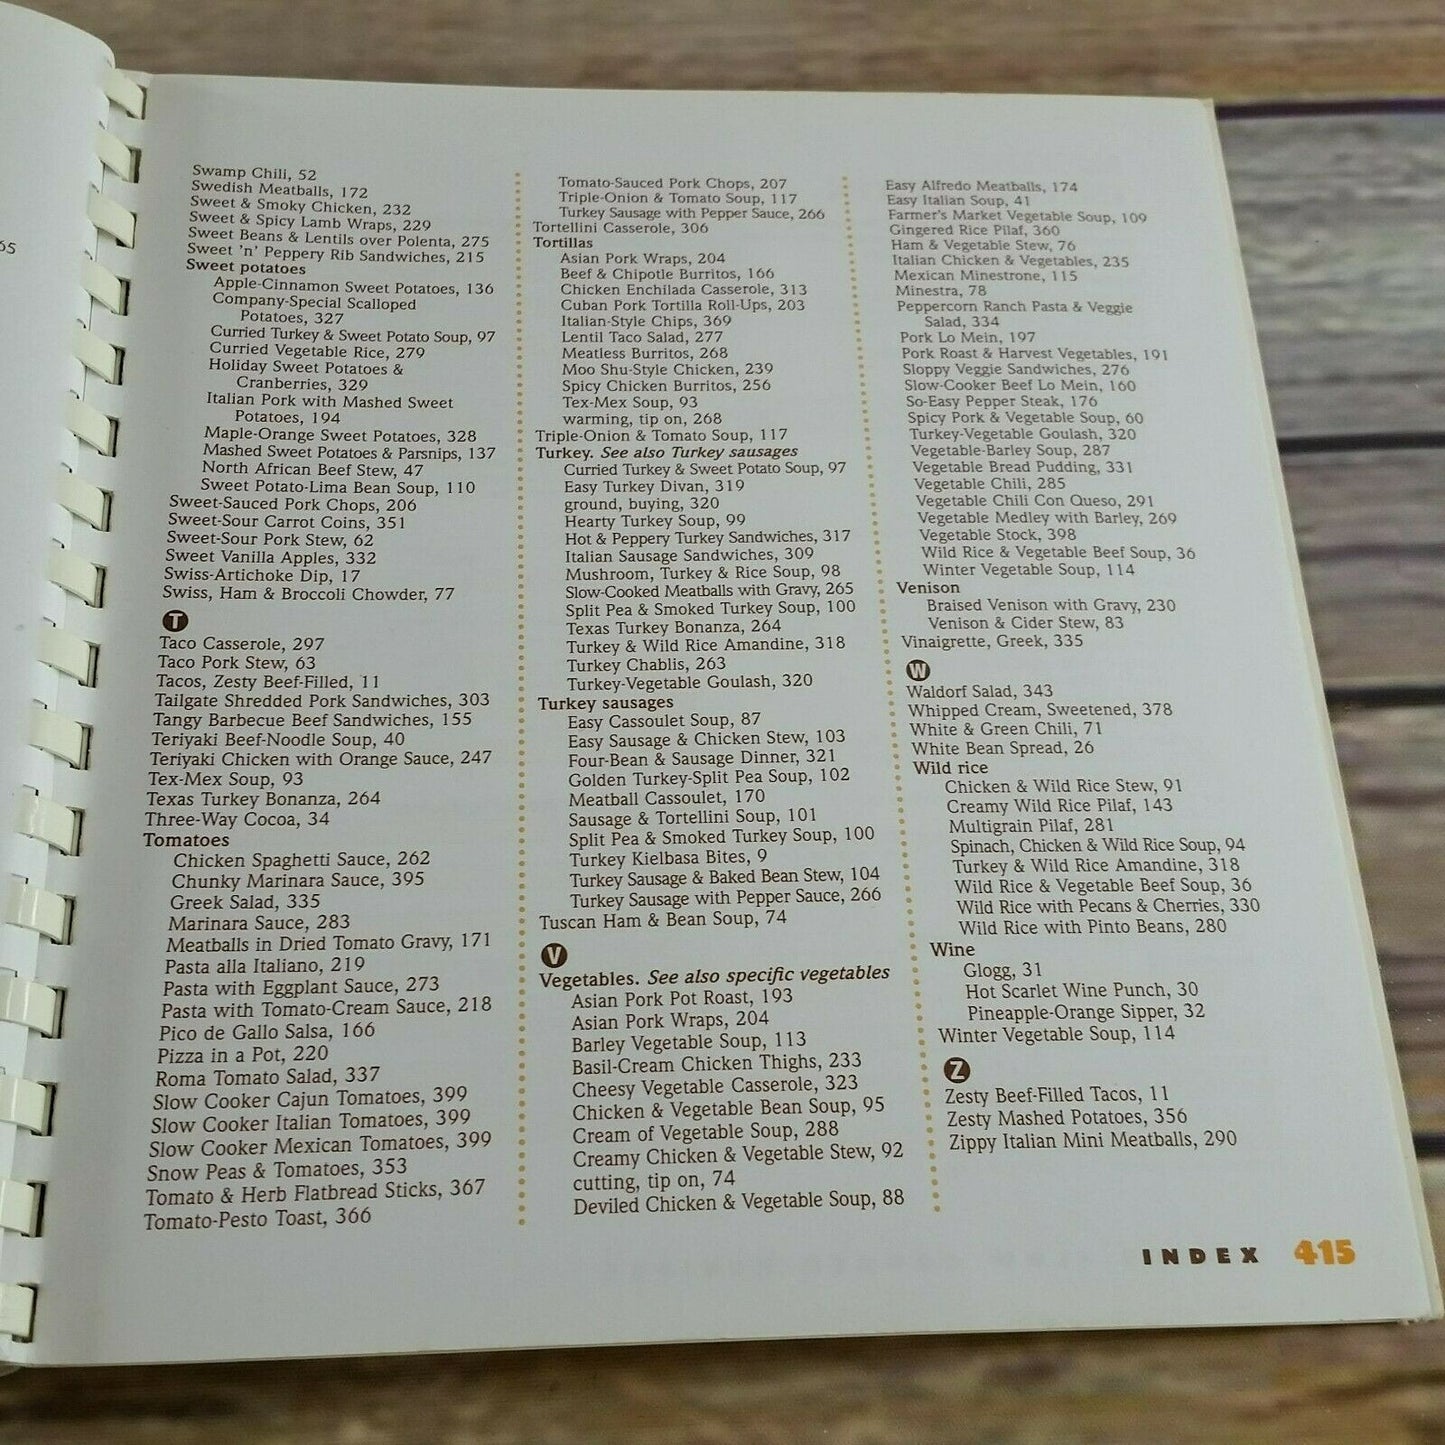 65
Swamp Chili, 52
Swedish Meatballs, 172
Sweet & Smoky Chicken, 232
Sweet & Spicy Lamb Wraps, 229
Sweet Beans & Lentils over Polenta, 275
Sweet 'n' Peppery Rib Sandwiches, 215
Sweet potatoes
Apple-Cinnamon Sweet Potatoes, 136
Company-Special Scalloped
Potatoes, 327
Curried Turkey & Sweet Potato Soup, 97
Curried Vegetable Rice, 279
Holiday Sweet Potatoes &
Cranberries, 329
Italian Pork with Mashed Sweet
Potatoes, 194
Maple-Orange Sweet Potatoes, 328
Mashed Sweet Potatoes & Parsnips, 137
North African Beef Stew, 47
Sweet Potato-Lima Bean Soup, 110
Sweet-Sauced Pork Chops, 206
Sweet-Sour Carrot Coins, 351
Sweet-Sour Pork Stew, 62
Sweet Vanilla Apples, 332
Swiss-Artichoke Dip, 17
Swiss, Ham & Broccoli Chowder, 77
T
Taco Casserole, 297
Taco Pork Stew, 63
Tacos, Zesty Beef-Filled, 11
Tailgate Shredded Pork Sandwiches, 303
Tangy Barbecue Beef Sandwiches, 155
Teriyaki Beef-Noodle Soup, 40
Teriyaki Chicken with Orange Sauce, 247
Tex-Mex Soup, 93
Texas Turkey Bonanza, 264
Three-Way Cocoa, 34
Tomatoes
Chicken Spaghetti Sauce, 262
Chunky Marinara Sauce, 395
Greek Salad, 335
Marinara Sauce, 283
Meatballs in Dried Tomato Gravy, 171
Pasta alla Italiano, 219
Pasta with Eggplant Sauce, 273
Pasta with Tomato-Cream Sauce, 218
Pico de Gallo Salsa, 166
Pizza in a Pot, 220
Roma Tomato Salad, 337
Slow Cooker Cajun Tomatoes, 399
Slow Cooker Italian Tomatoes, 399
Slow Cooker Mexican Tomatoes, 399
Snow Peas & Tomatoes, 353
Tomato & Herb Flatbread Sticks, 367
Tomato-Pesto Toast, 366
Tomato-Sauced Pork Chops, 207
Triple-Onion & Tomato Soup, 117
Turkey Sausage with Pepper Sauce, 266
Tortellini Casserole, 306
Tortillas
Asian Pork Wraps, 204
Beef & Chipotle Burritos, 166
Chicken Enchilada Casserole, 313
Cuban Pork Tortilla Roll-Ups, 203
Italian-Style Chips, 369
Lentil Taco Salad, 277
Meatless Burritos, 268
Moo Shu-Style Chicken, 239
Spicy Chicken Burritos, 256
Tex-Mex Soup, 93
warming, tip on, 268
Triple-Onion & Tomato Soup, 117
Turkey. See also Turkey sausages
Curried Turkey & Sweet Potato Soup, 97
Easy Turkey Divan, 319
ground, buying, 320
Hearty Turkey Soup, 99
Hot & Peppery Turkey Sandwiches, 317
Italian Sausage Sandwiches, 309
Mushroom, Turkey & Rice Soup, 98
Slow-Cooked Meatballs with Gravy, 265
Split Pea & Smoked Turkey Soup, 100
Texas Turkey Bonanza, 264
Turkey & Wild Rice Amandine, 318
Turkey Chablis, 263
Turkey-Vegetable Goulash, 320
Turkey sausages
Easy Cassoulet Soup, 87
Easy Sausage & Chicken Stew, 103
Four-Bean & Sausage Dinner, 321
Golden Turkey-Split Pea Soup, 102
Meatball Cassoulet, 170
Sausage & Tortellini Soup, 101
Split Pea & Smoked Turkey Soup, 100
Turkey Kielbasa Bites, 9
Turkey Sausage & Baked Bean Stew, 104
Turkey Sausage with Pepper Sauce, 266
Tuscan Ham & Bean Soup, 74
V
Vegetables. See also specific vegetables
Asian Pork Pot Roast, 193
Asian Pork Wraps, 204
Barley Vegetable Soup, 113
Basil-Cream Chicken Thighs, 233
Cheesy Vegetable Casserole, 323
Chicken & Vegetable Bean Soup, 95
Cream of Vegetable Soup, 288
Creamy Chicken & Vegetable Stew, 92
cutting, tip on, 74
Deviled Chicken & Vegetable Soup, 88
Easy Alfredo Meatballs, 174
Easy Italian Soup, 41
Farmer's Market Vegetable Soup, 109
Gingered Rice Pilaf, 360
Ham & Vegetable Stew, 76
Italian Chicken & Vegetables, 235
Mexican Minestrone, 115
Minestra, 78
Peppercorn Ranch Pasta & Veggie
Salad, 334
Pork Lo Mein, 197
Pork Roast & Harvest Vegetables, 191
Sloppy Veggie Sandwiches, 276
Slow-Cooker Beef Lo Mein, 160
So-Easy Pepper Steak, 176
Spicy Pork & Vegetable Soup, 60
Turkey-Vegetable Goulash, 320
Vegetable-Barley Soup, 287
Vegetable Bread Pudding, 331
Vegetable Chili, 285
Vegetable Chili Con Queso, 291
Vegetable Medley with Barley, 269
Vegetable Stock, 398
Wild Rice & Vegetable Beef Soup, 36
Winter Vegetable Soup, 114
Venison
Braised Venison with Gravy, 230
Venison & Cider Stew, 83
Vinaigrette, Greek, 335
W
Waldorf Salad, 343
Whipped Cream, Sweetened, 378
White & Green Chili, 71
White Bean Spread, 26
Wild rice
Chicken & Wild Rice Stew, 91
Creamy Wild Rice Pilaf, 143
Multigrain Pilaf, 281
Spinach, Chicken & Wild Rice Soup, 94
Turkey & Wild Rice Amandine, 318
Wild Rice & Vegetable Beef Soup, 36
Wild Rice with Pecans & Cherries, 330
Wild Rice with Pinto Beans, 280
Wine
Glogg, 31
Hot Scarlet Wine Punch, 30
Pineapple-Orange Sipper, 32
Winter Vegetable Soup, 114
Z
Zesty Beef-Filled Tacos, 11
Zesty Mashed Potatoes, 356
Zippy Italian Mini Meatballs, 290
INDEX 415